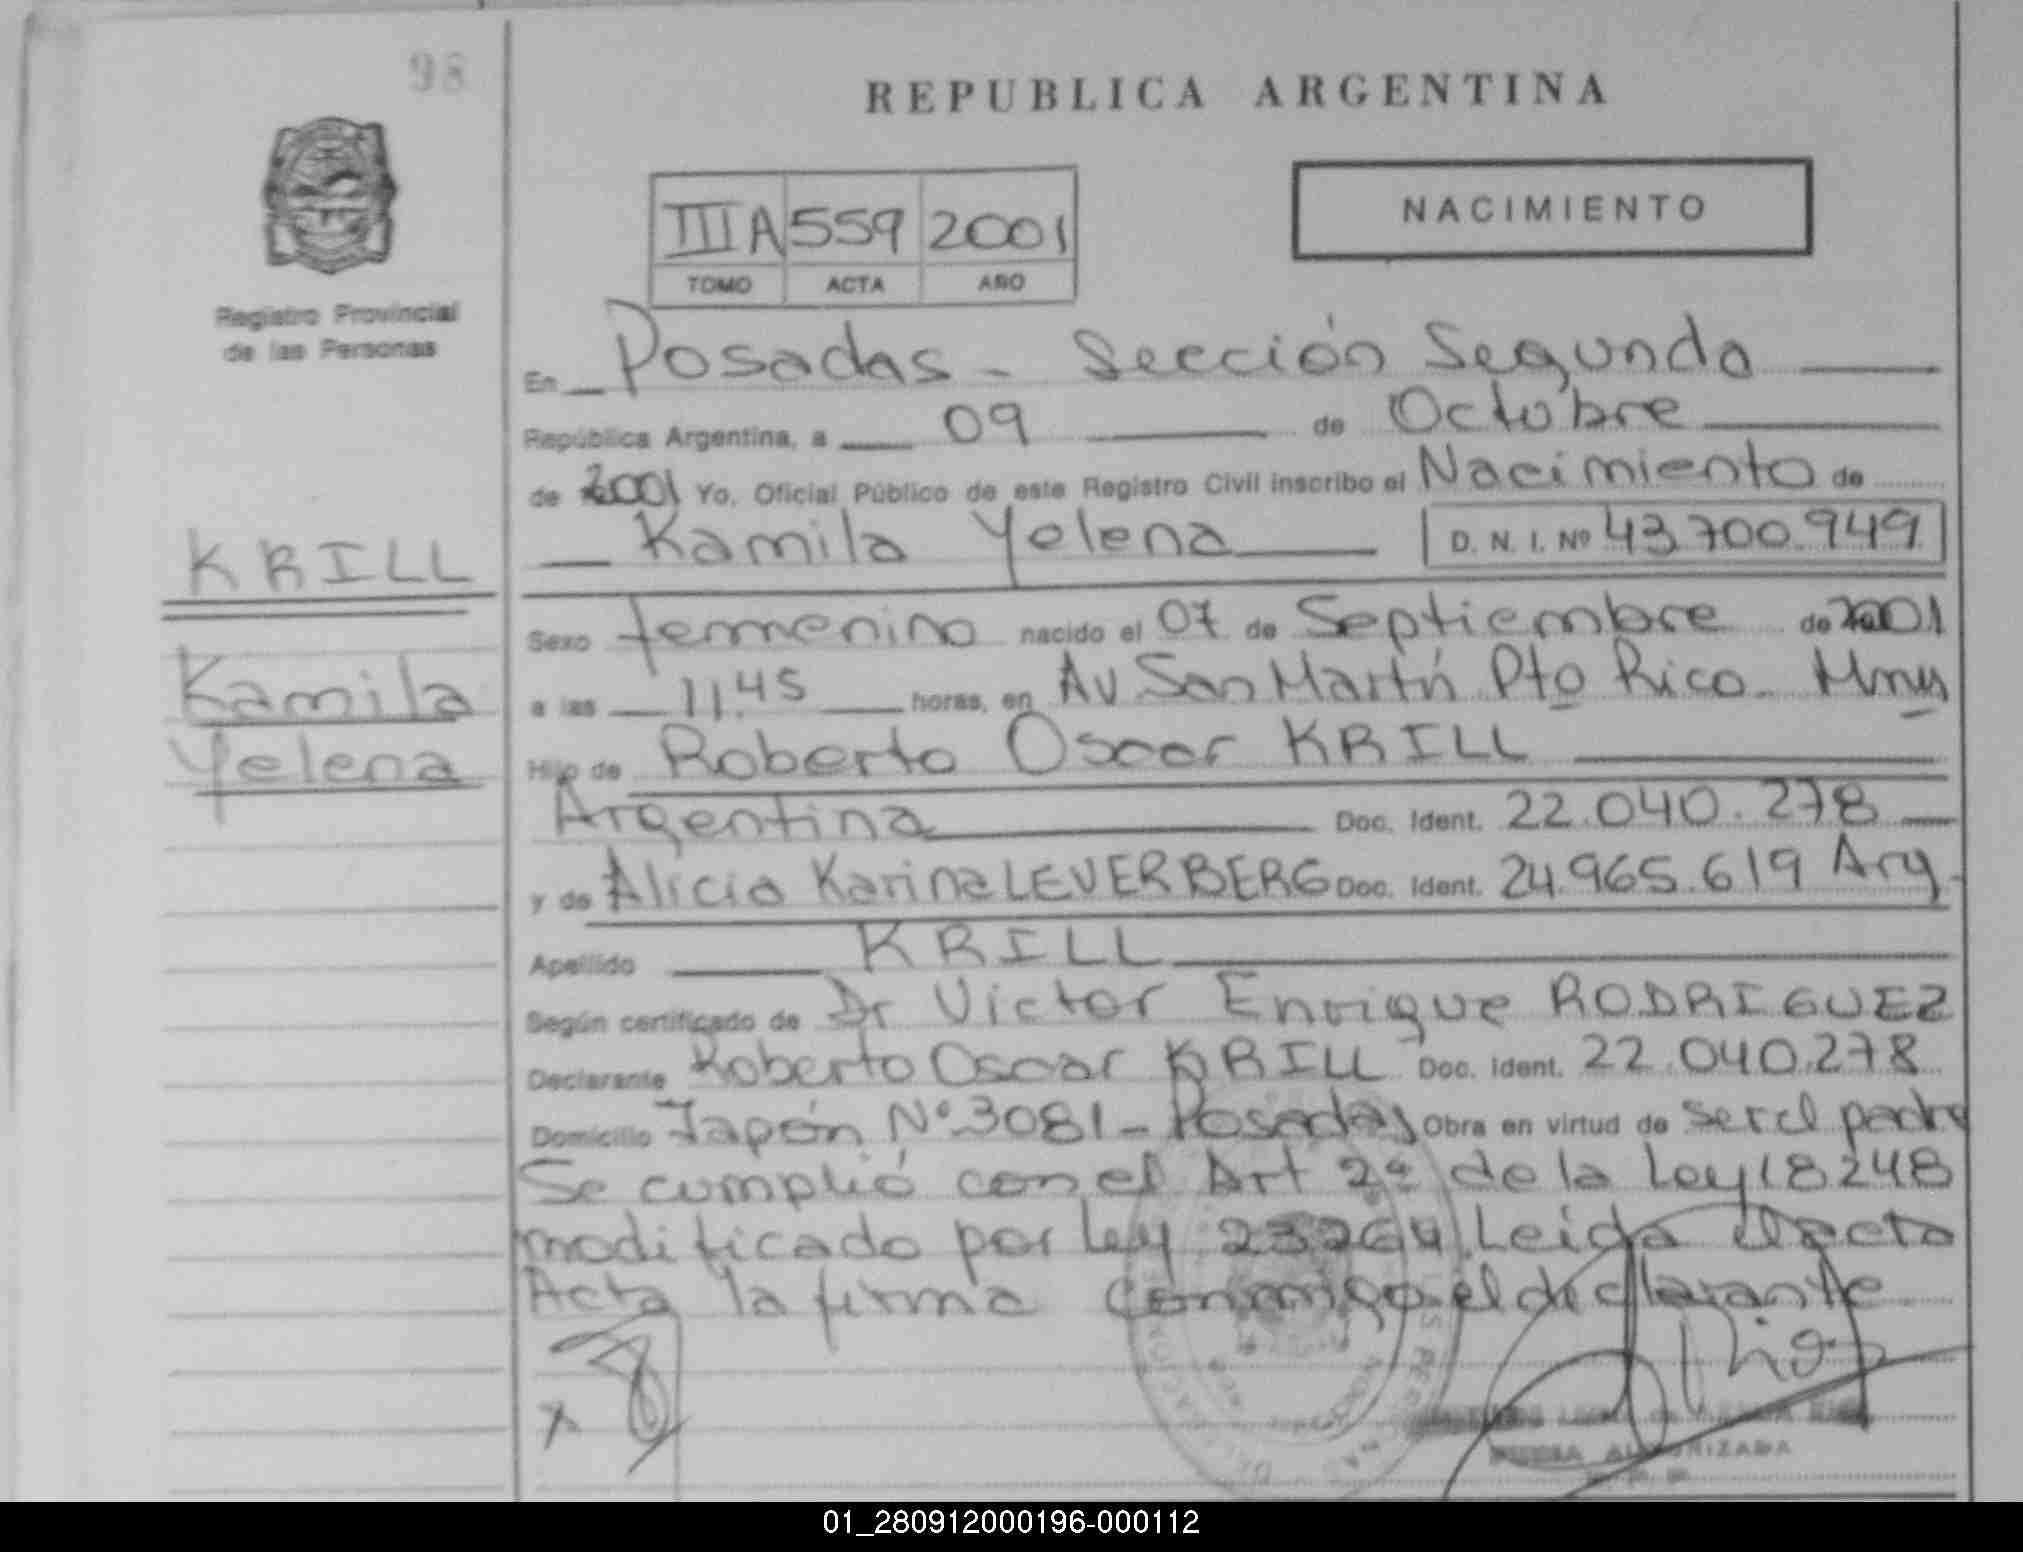 98
REPUBLICA ARGENTINA
NACIMIENTO
III A 559 2001
TOMO ACTA AÑO
Registro Provincial
de las Personas
En Posadas - Sección Segunda
República Argentina, a 09 de Octubre
de 2001 Yo, Oficial Público de este Registro Civil inscribo el Nacimiento de
Kamila Yelena D. N. I. Nº 43.700.949
KRILL
Kamila
Yelena
Sexo femenino nacido el 07 de Septiembre de 2001
a las 11.45 horas, en Av San Martín Pto Rico - Mnes
Hijo de Roberto Oscar KRILL
Argentina Doc. Ident. 22.040.278
y de Alicia Karina LEVERBERG Doc. Ident. 24.965.619 Arg.
Apellido KRILL
Según certificado de Dr Victor Enrique RODRIGUEZ
Declarante Roberto Oscar KRILL Doc. Ident. 22.040.278
Domicilio Japón Nº 3081 - Posadas Obra en virtud de ser el padre
Se cumplió con el Art 2º de la Ley 18248
modificado por Ley 23264. Leida
Acta la firma conmigo el declarante
AUTORIZADA
01_280912000196-000112